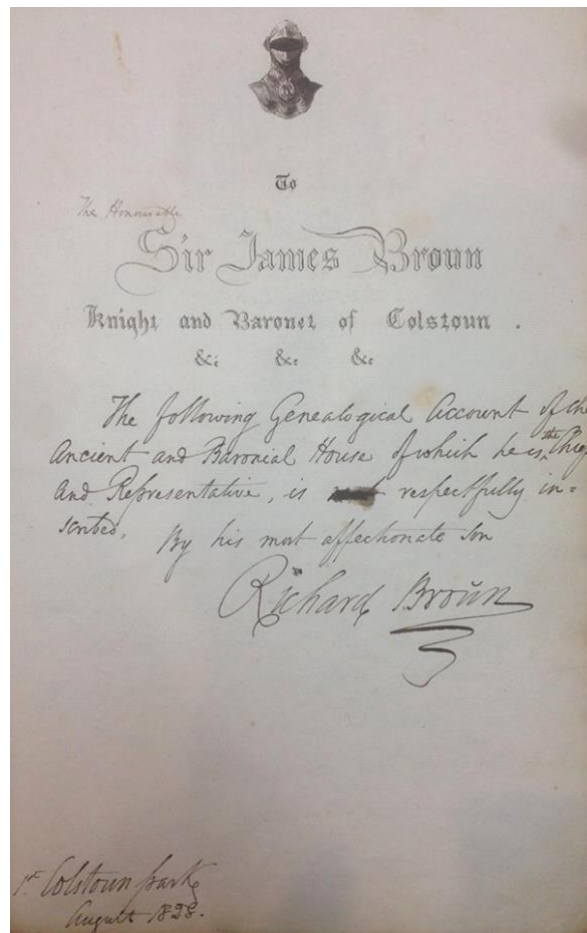 To
The Honourable
Sir James Broun
Knight and Baronet of Colstoun .
&c &c &c
The following Genealogical Account of the
Ancient and Baronial House of which he is the Chief
and Representative, is respectfully in=
scribed,
By his most affectionate son
Richard Broun
Colstoun park
August 1828.